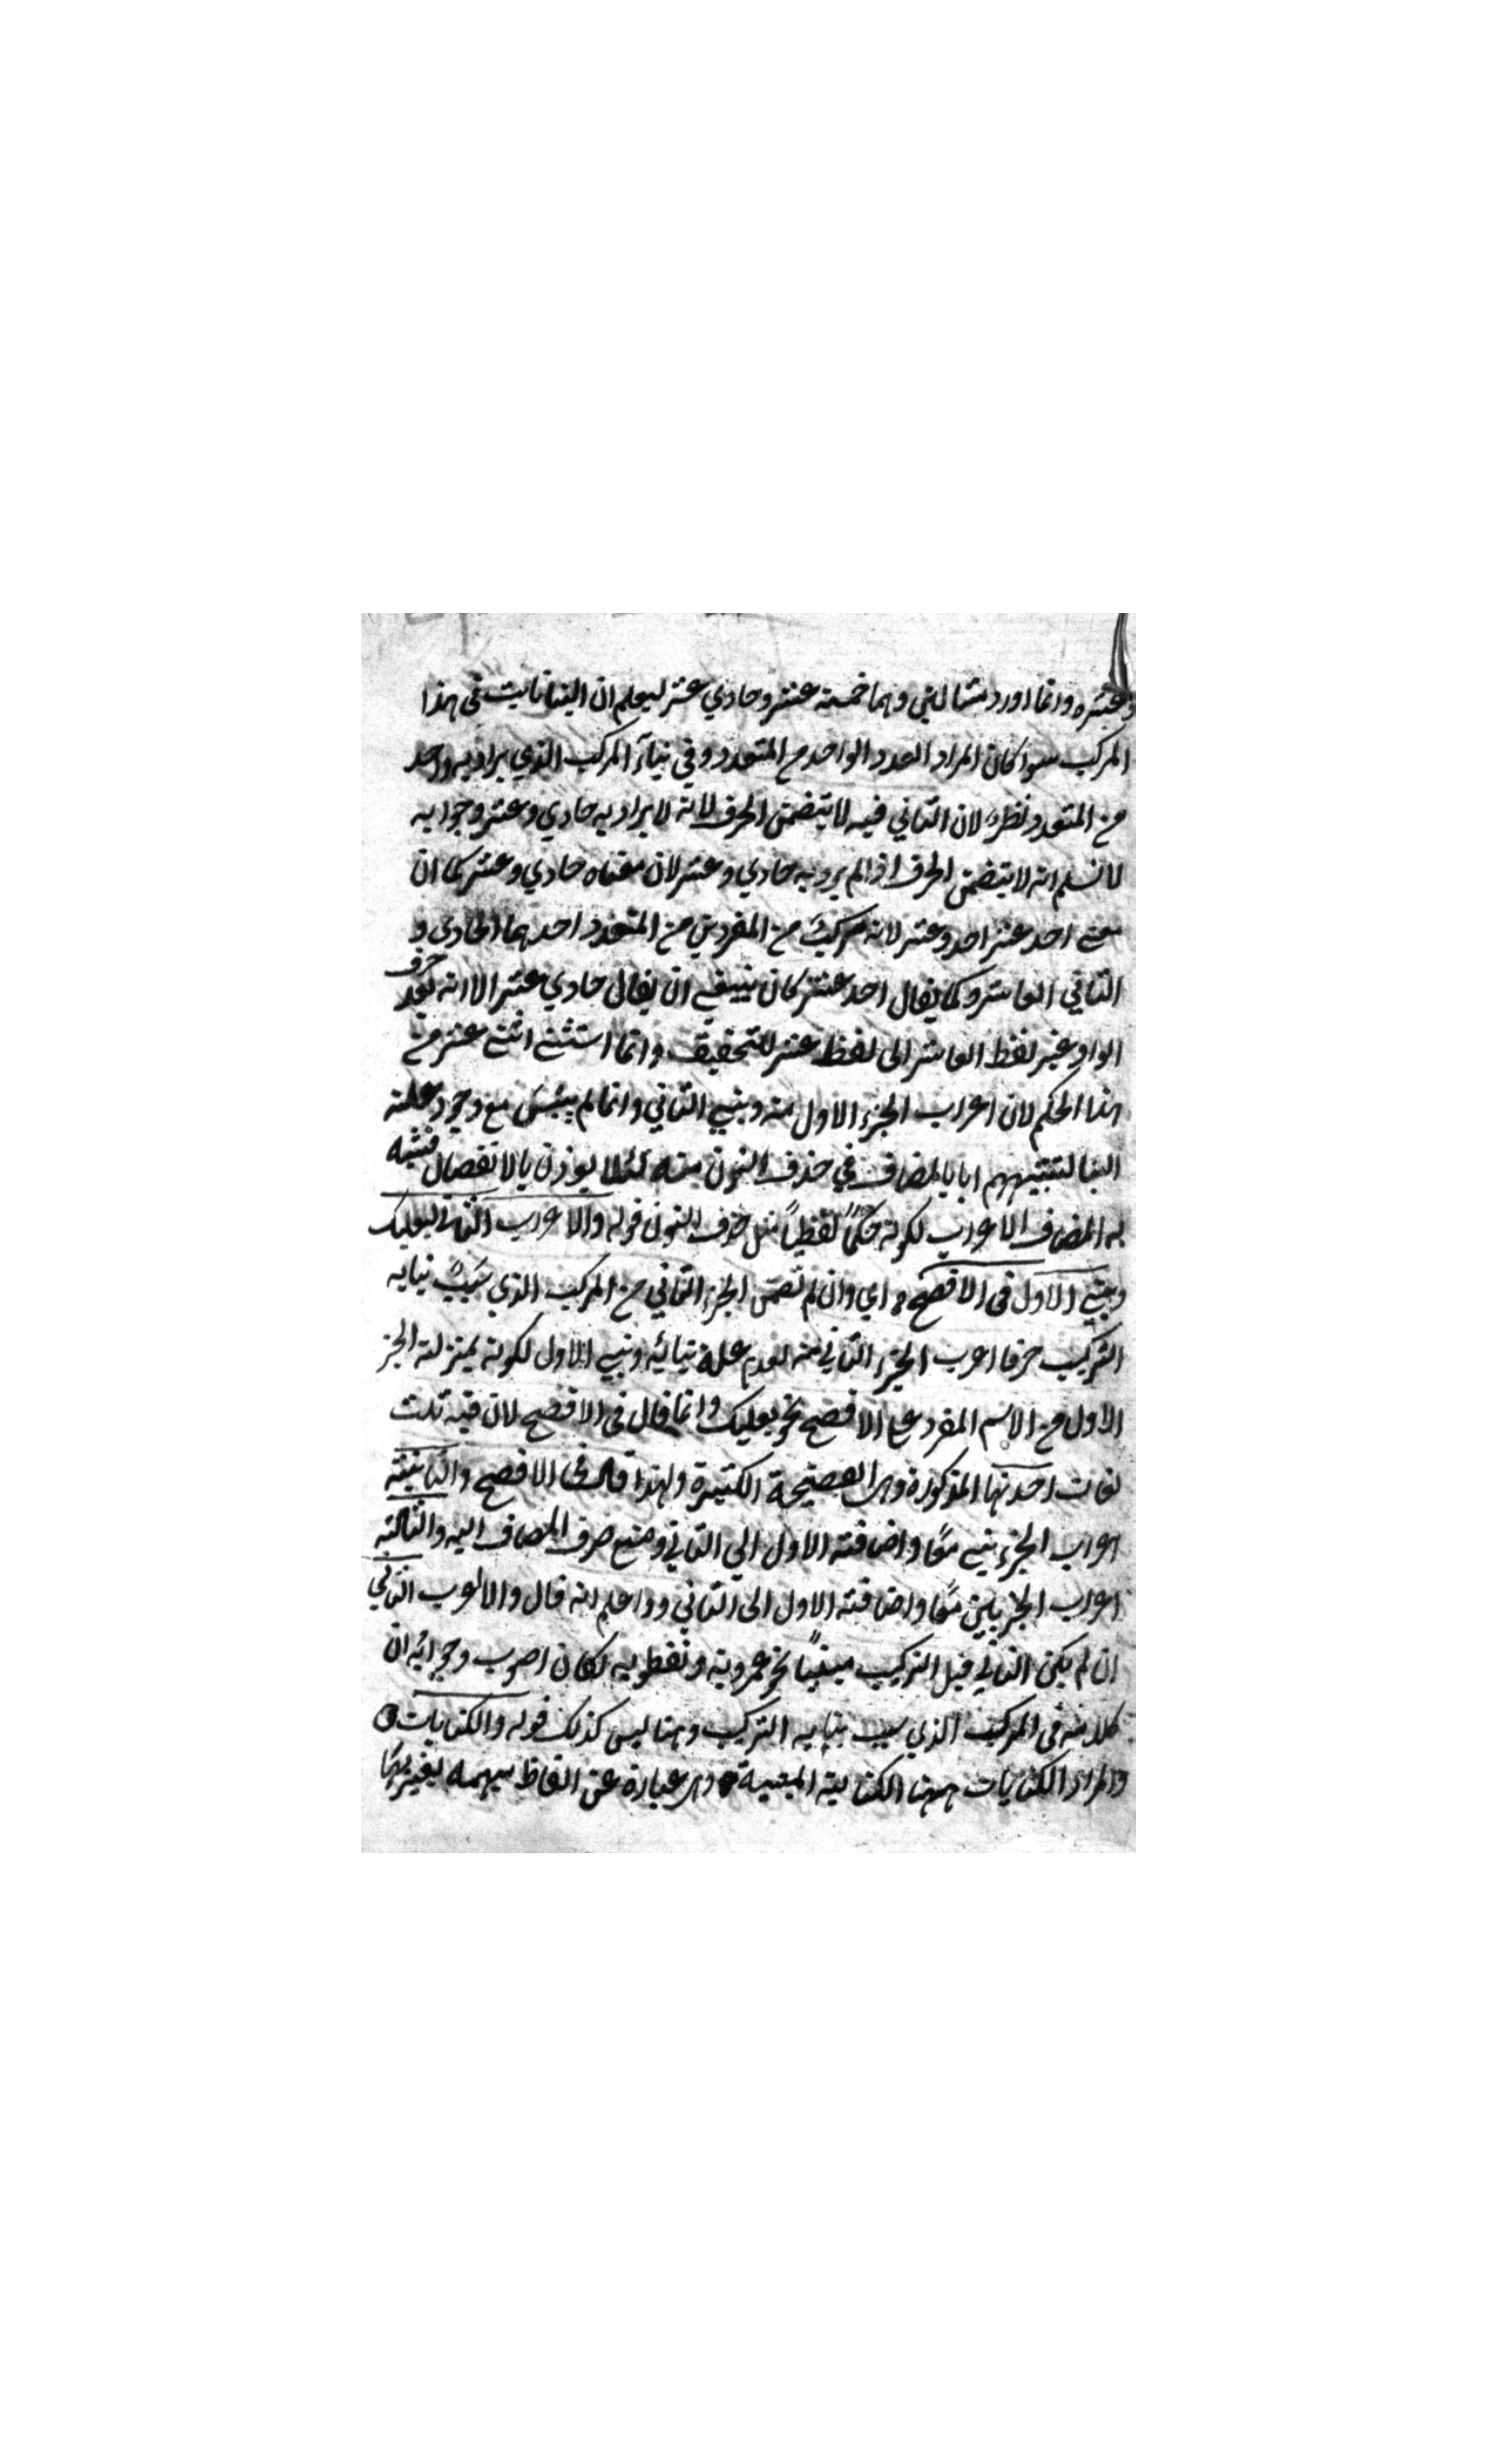 وعشره وانما اورد مثالين وهما خمسة عشر وحادي عشر ليعلم ان البنا ثابت في هذا
المركب سوا كان المراد العدد الواحد من المتعدد وفي بناء المركب الذي يراد به واحد
من المتعدد نظر لان الثاني فيه لا يتضمن الحرف لانه لا يراد به حادي وعشر وجوابه
لا نسلم انه لا يتضمن الحرف اذا لم يرد به حادي وعشر لان معناه حادي وعشر كما ان
معنى احد عشر احد وعشر لانه مركب من المفردين من المتعدد احدهما الحادي و
الثاني العاشر وكما يقال احد عشر كان ينبغي ان يقال حادي عشر الا انه بعد حذف
الواو غير لفظ العاشر الى لفظ عشر للتخفيف وانما استثنى اثنى عشر من
هذا الحكم لان اعراب الجزء الاول منه وبني الثاني وانما لم يبن مع وجود علة
البنا لتشبيههم ايا بالمضاف في حذف النون منه لئلا يوذن بالانفصال فشبه
به المضاف الاعراب لكونه حكما لفظيا مثل حذف النون قوله والا اعرب الثاني لبعلبك
وبني الاول في الافصح اي وان لم تضمن الجزء الثاني من المركب الذي سبب بنايه
التركيب حرفا اعرب الجزء الثاني منه لعدم علة بنائه وبني الاول لكونه بمنزلة الجز
الاول من الاسم المفرد على الافصح نحو بعلبك وانما قال في الافصح لان فيه ثلث
لغات احدىها المذكورة وهي الفصيحة الكثيرة ولهذا قال في الافصح والثانية
اعراب الجزء بني معا واضافة الاول الى الثاني ومنع صرف المضاف اليه والثالثة
اعراب الجزيين معا واضافة الاول الى الثاني واعلم انه قال والا اعرب الثاني
ان لم يكن الثاني قبل التركيب مبنيا نحو عمرويه ونفطويه لكان اصوب وجوابه ان
كلامه في المركب الذي سبب بنايه التركيب وهنا ليس كذلك قوله والكنايات
والمراد الكنايات ههنا الكناية المبنية وهي عبارة عن الفاظ مبهمه يعبر بها